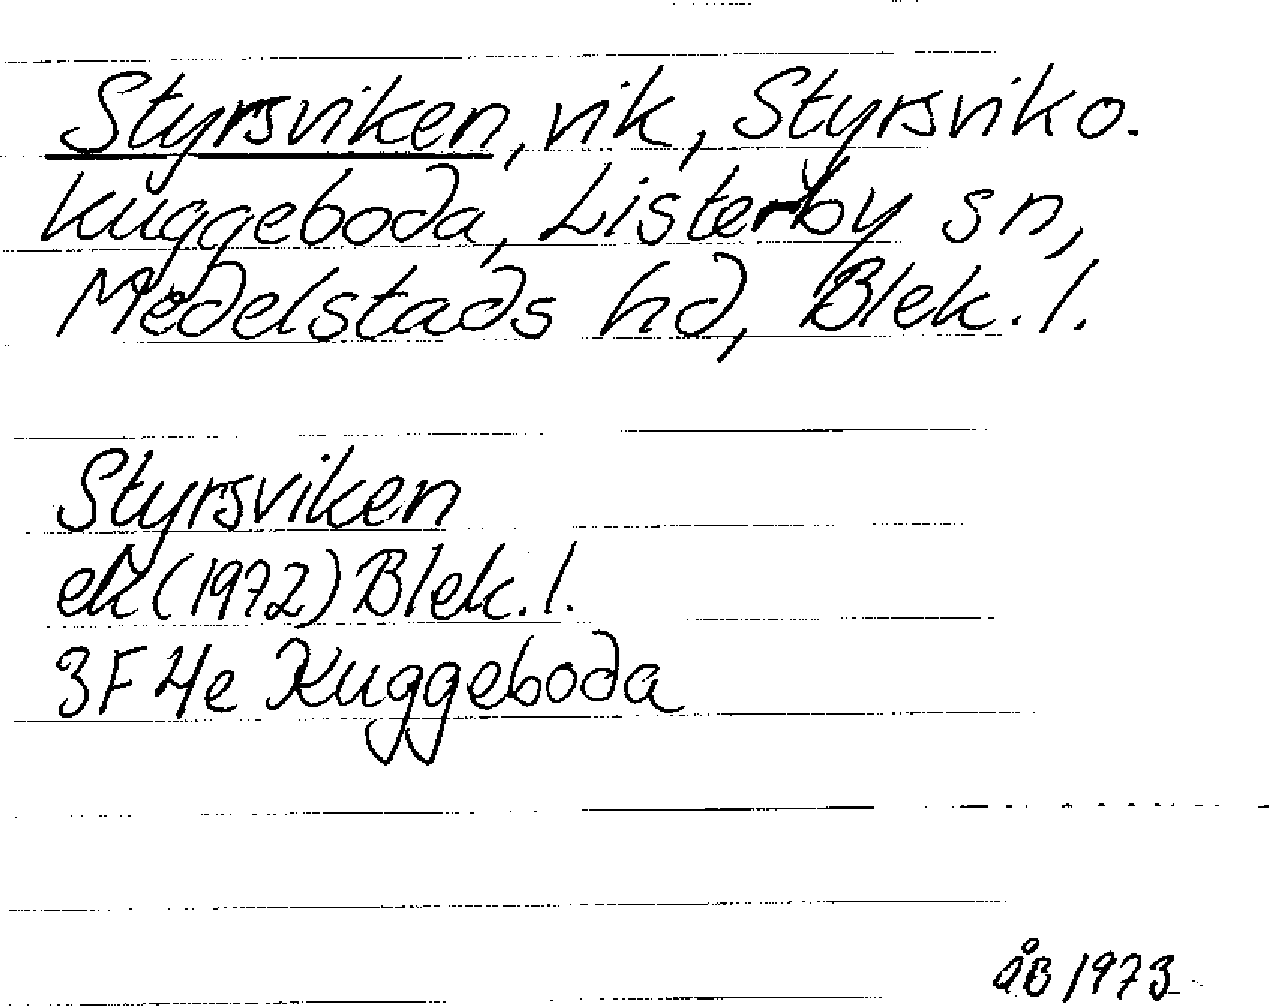 Styrsviken, vik, Styrsvik o.
Kuggeboda, Listerby sn,
Medelstads hd, Blek. l.
Styrsviken
ek (1972) Blek. l.
3F 4e Kuggeboda
åB 1973